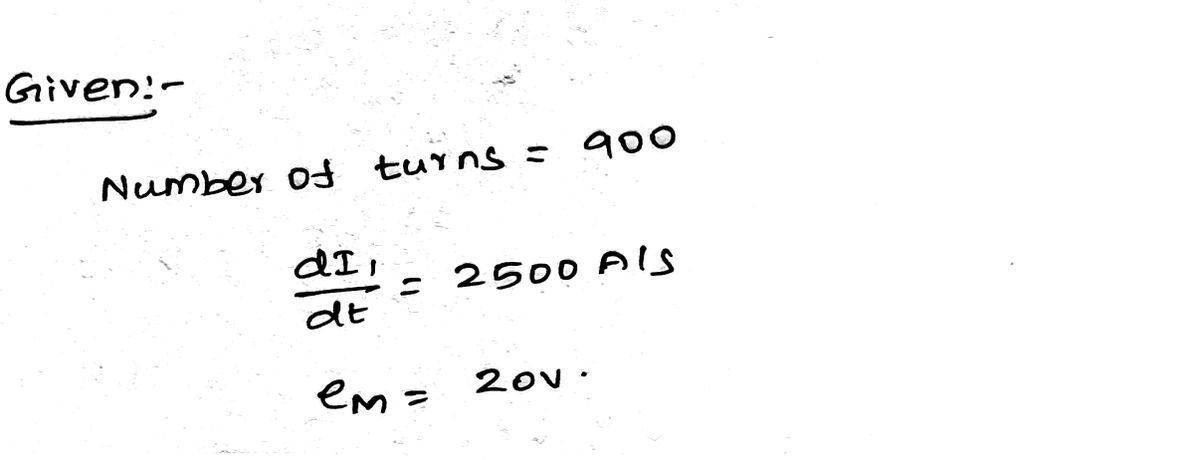 Given:-
Number of turns = 900
dI₁/dt = 2500 A/s
eM = 20V.